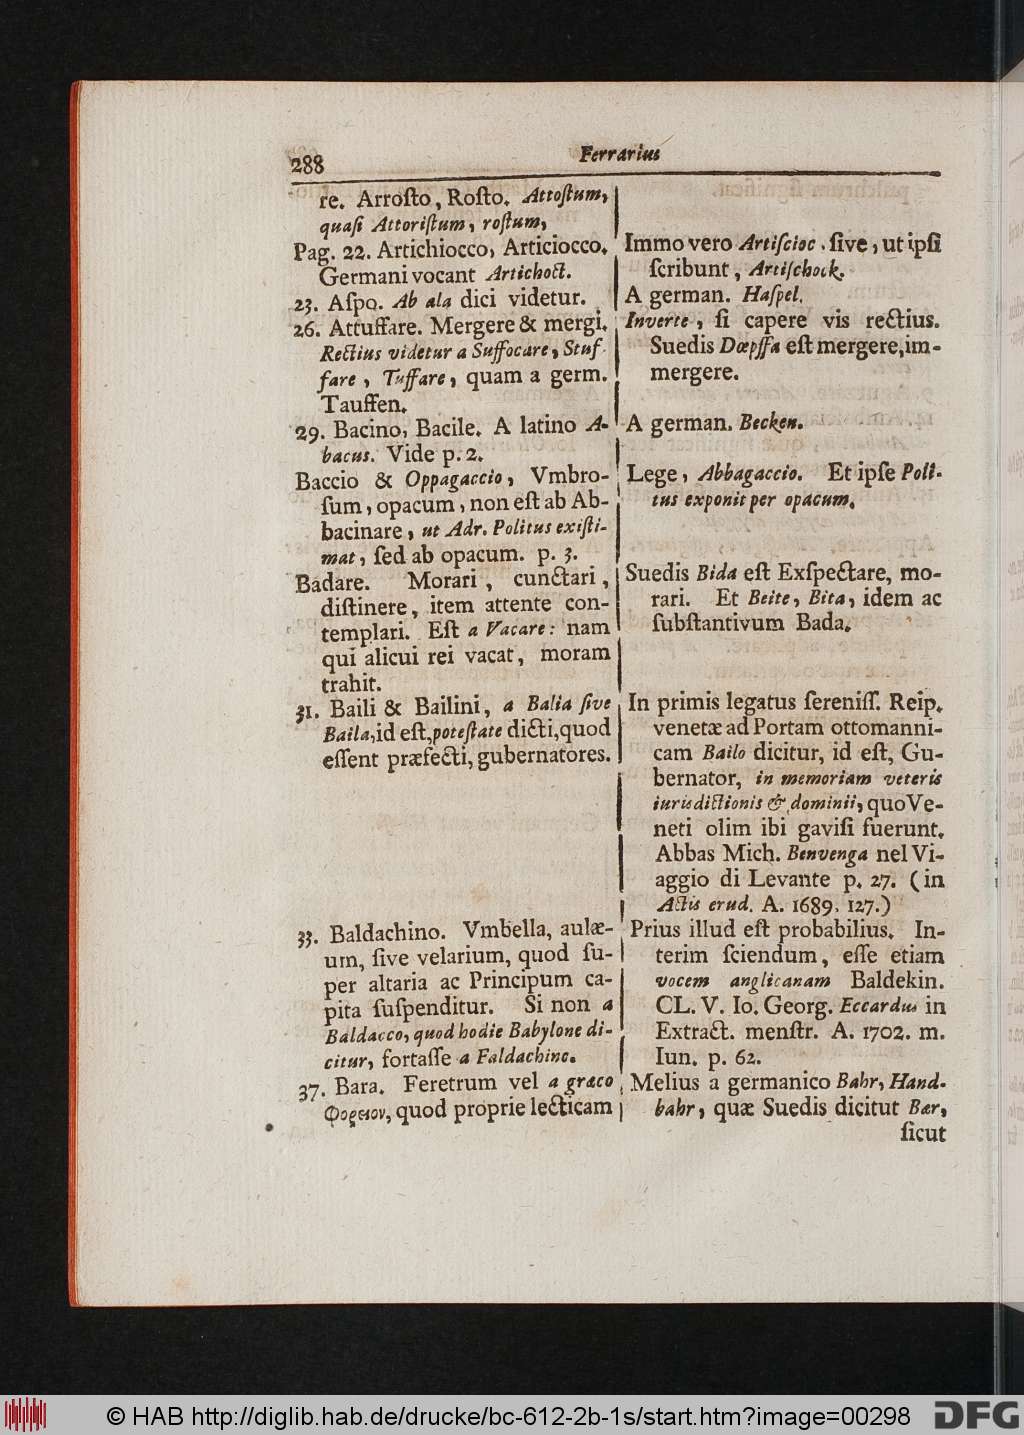 288
Ferrarius
re. Arroſto, Roſto. Attoſtum,
quaſi Attoriſtum, roſtum,
Pag. 22. Artichiocco, Articiocco.
Germani vocant Artichoct.
23. Aſpo. Ab ala dici videtur.
26. Attuffare. Mergere & mergi.
Rectius videtur a Suffocare, Stuf-
fare, Tuffare, quam a germ.
Tauffen.
29. Bacino, Bacile. A latino A-
bacus. Vide p. 2.
Baccio & Oppagaccio, Vmbro-
ſum, opacum, non eſt ab Ab-
bacinare, ut Adr. Politus exiſti-
mat, ſed ab opacum. p. 3.
Badare. Morari, cunctari,
diſtinere, item attente con-
templari. Eſt a Vacare: nam
qui alicui rei vacat, moram
trahit.
31. Baili & Bailini, a Balia ſive
Baila, id eſt, poteſtate dicti, quod
eſſent præfecti, gubernatores.
33. Baldachino. Vmbella, aulæ-
um, ſive velarium, quod ſu-
per altaria ac Principum ca-
pita ſuſpenditur. Si non a
Baldacco, quod hodie Babylone di-
citur, fortaſſe a Faldachino.
37. Bara. Feretrum vel a græco
Φορειον, quod proprie lecticam
Immo vero Artiſcioc. ſive, ut ipſi
ſcribunt, Artiſchock.
A german. Haſpel.
Inverte, ſi capere vis rectius.
Suedis Dœpffa eſt mergere, im-
mergere.
A german. Becken.
Lege, Abbagaccio. Et ipſe Poli-
tus exponit per opacum.
Suedis Bida eſt Exſpectare, mo-
rari. Et Beite, Bita, idem ac
ſubſtantivum Bada.
In primis legatus ſereniſſ. Reip.
venetæ ad Portam ottomanni-
cam Bailo dicitur, id eſt, Gu-
bernator, in memoriam veteris
iurisdictionis & dominii, quo Ve-
neti olim ibi gaviſi fuerunt.
Abbas Mich. Benvenga nel Vi-
aggio di Levante p. 27. (in
Actis erud. A. 1689. 127.)
Prius illud eſt probabilius. In-
terim ſciendum, eſſe etiam
vocem anglicanam Baldekin.
CL. V. Io. Georg. Eccardus in
Extract. menſtr. A. 1702. m.
Iun. p. 62.
Melius a germanico Bahr, Hand-
bahr, quæ Suedis dicitut Bær,
ſicut
© HAB http://diglib.hab.de/drucke/bc-612-2b-1s/start.htm?image=00298
DFG